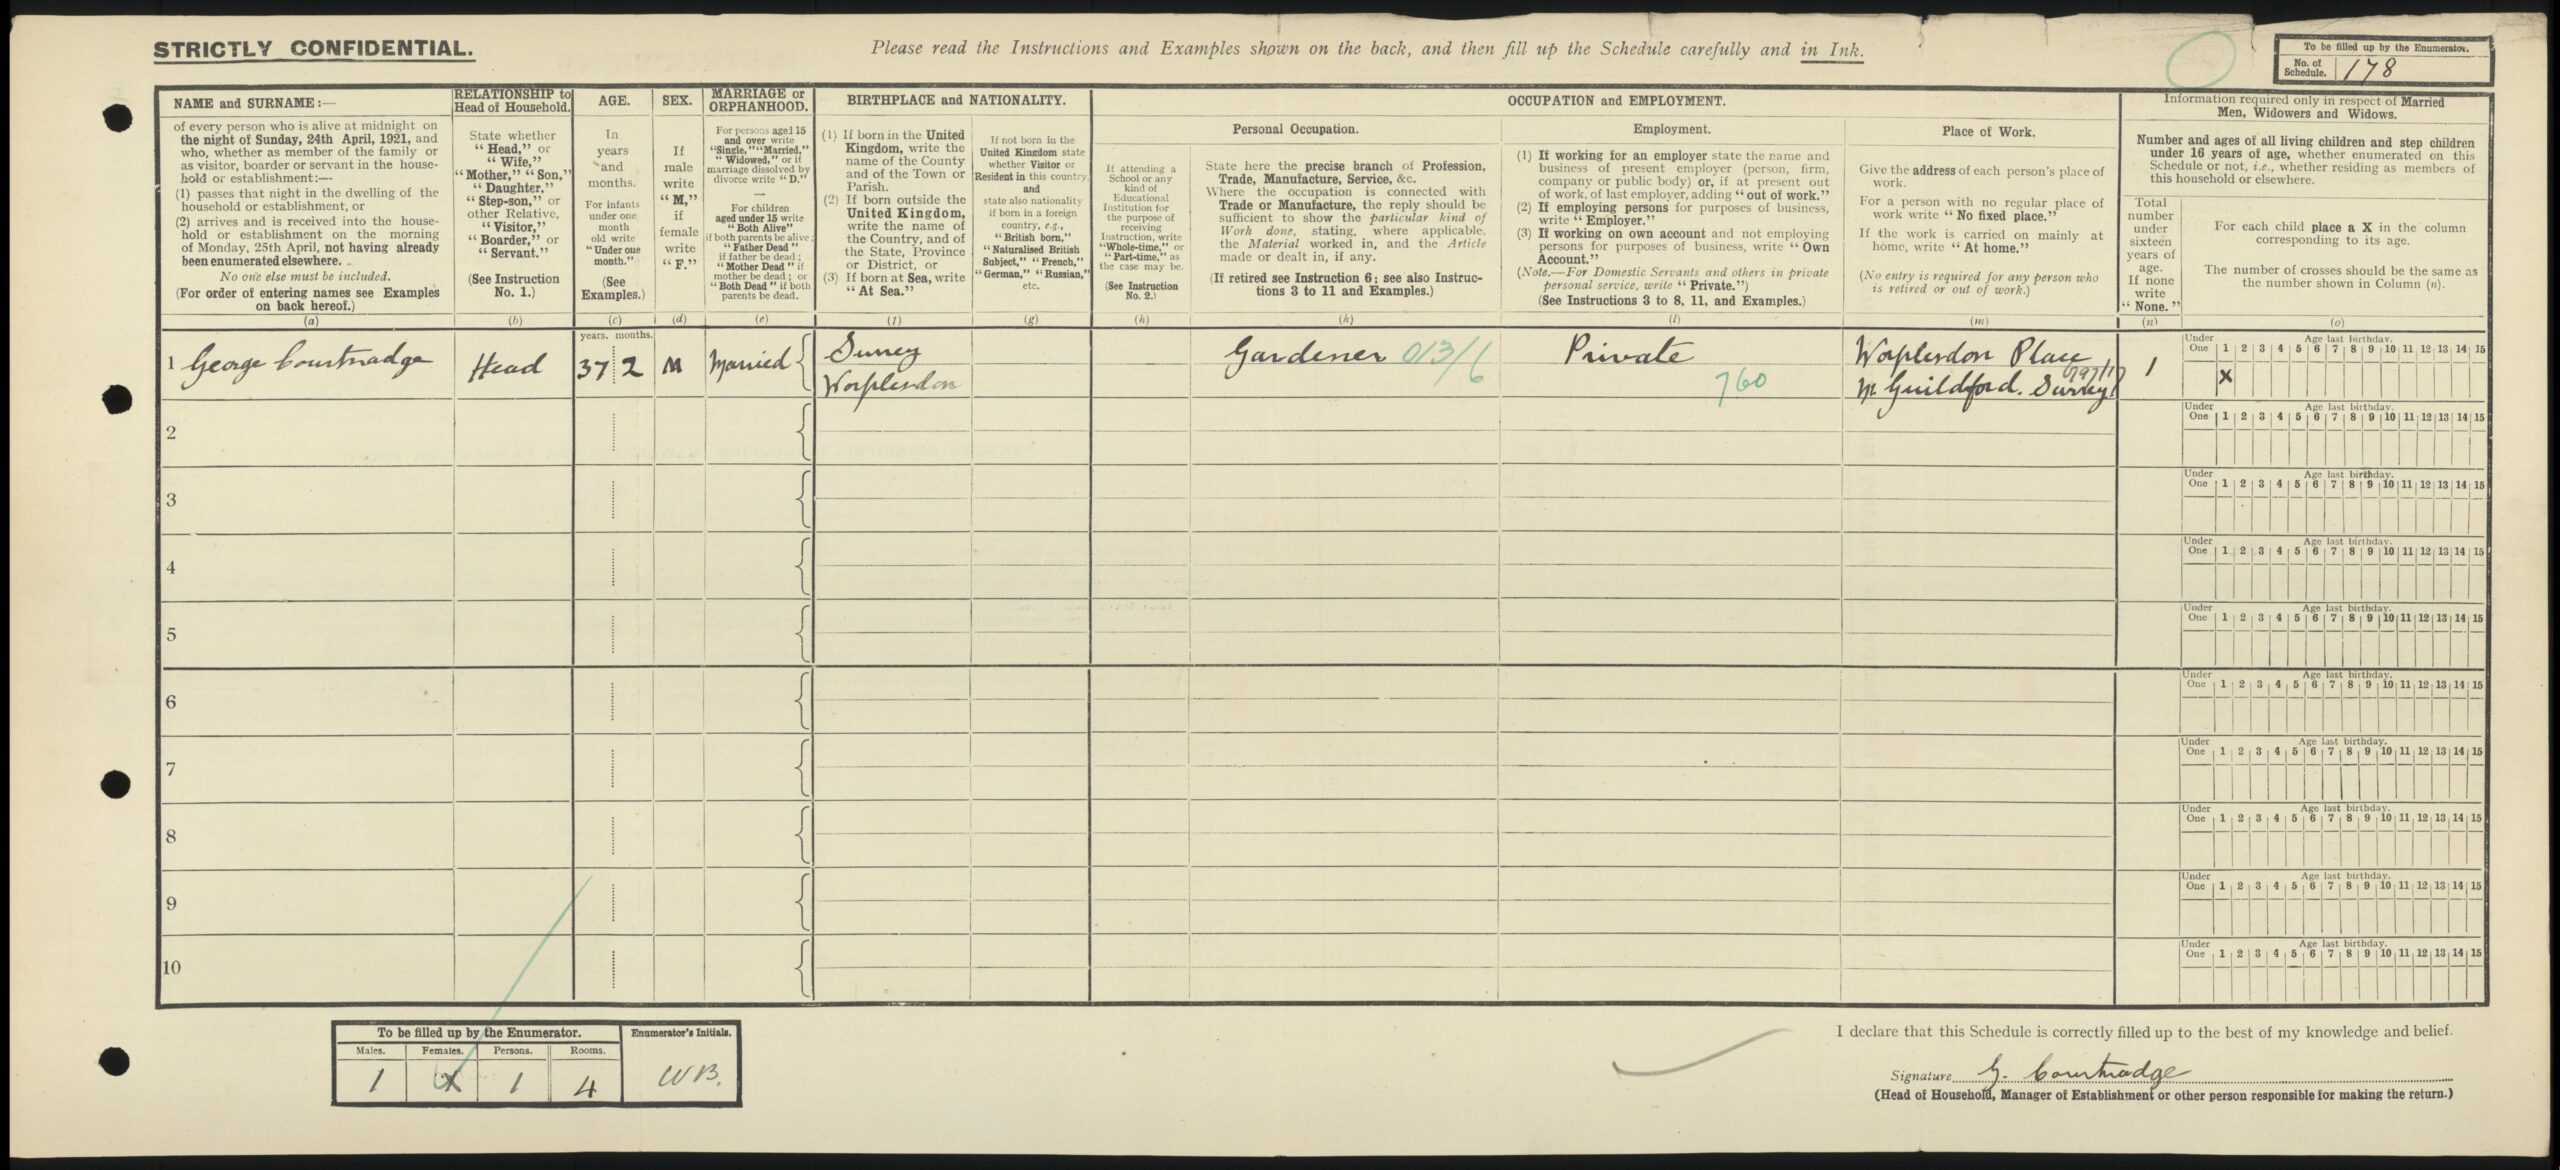 STRICTLY CONFIDENTIAL.
Please read the Instructions and Examples shown on the back, and then fill up the Schedule carefully and in Ink.
To be filled up by the Enumerator.
No. of Schedule. 178
NAME and SURNAME:—
of every person who is alive at midnight on
the night of Sunday, 24th April, 1921, and
who, whether as member of the family or
as visitor, boarder or servant in the house-
hold or establishment:—
(1) passes that night in the dwelling of the
household or establishment, or
(2) arrives and is received into the house-
hold or establishment on the morning
of Monday, 25th April, not having already
been enumerated elsewhere.
No one else must be included.
(For order of entering names see Examples
on back hereof.)
(a)
RELATIONSHIP to
Head of Household.
State whether
"Head," or
"Wife,"
"Mother," "Son,"
"Daughter,"
"Step-son," or
other Relative,
"Visitor,"
"Boarder," or
"Servant."
(See Instruction
No. 1.)
(b)
AGE.
In
years
and
months.
For infants
under one
month
old write
"Under one
month."
(See
Examples.)
(c)
SEX.
If
male
write
"M,"
if
female
write
"F."
(d)
MARRIAGE or
ORPHANHOOD.
For persons aged 15
and over write
"Single," "Married,"
"Widowed," or if
marriage dissolved by
divorce write "D."
—
For children
aged under 15 write
"Both Alive"
if both parents be alive;
"Father Dead"
if father be dead;
"Mother Dead" if
mother be dead; or
"Both Dead" if both
parents be dead.
(e)
BIRTHPLACE and NATIONALITY.
(1) If born in the United
Kingdom, write the
name of the County
and of the Town or
Parish.
(2) If born outside the
United Kingdom,
write the name of
the Country, and of
the State, Province
or District, or
(3) If born at Sea, write
"At Sea."
(f)
If not born in the
United Kingdom state
whether Visitor or
Resident in this country,
and
state also nationality
if born in a foreign
country, e.g.,
"British born,"
"Naturalised British
Subject," "French,"
"German," "Russian,"
etc.
(g)
OCCUPATION and EMPLOYMENT.
If attending a
School or any
kind of
Educational
Institution for
the purpose of
receiving
Instruction, write
"Whole-time," or
"Part-time," as
the case may be.
(See Instruction
No. 2.)
(h)
Personal Occupation.
State here the precise branch of Profession,
Trade, Manufacture, Service, &c.
Where the occupation is connected with
Trade or Manufacture, the reply should be
sufficient to show the particular kind of
Work done, stating, where applicable,
the Material worked in, and the Article
made or dealt in, if any.
(If retired see Instruction 6; see also Instruc-
tions 3 to 11 and Examples.)
(k)
Employment.
(1) If working for an employer state the name and
business of present employer (person, firm,
company or public body) or, if at present out
of work, of last employer, adding "out of work."
(2) If employing persons for purposes of business,
write "Employer."
(3) If working on own account and not employing
persons for purposes of business, write "Own
Account."
(Note.—For Domestic Servants and others in private
personal service, write "Private.")
(See Instructions 3 to 8, 11, and Examples.)
(l)
Place of Work.
Give the address of each person's place of
work.
For a person with no regular place of
work write "No fixed place."
If the work is carried on mainly at
home, write "At home."
(No entry is required for any person who
is retired or out of work.)
(m)
Information required only in respect of Married
Men, Widowers and Widows.
Number and ages of all living children and step children
under 16 years of age, whether enumerated on this
Schedule or not, i.e., whether residing as members of
this household or elsewhere.
Total
number
under
sixteen
years of
age.
If none
write
"None."
(n)
For each child place a X in the column
corresponding to its age.
The number of crosses should be the same as
the number shown in Column (n).
(o)
years. months.
1 George Courtnadge Head 37 2 M Married Surrey Gardener 013/6 Private Worplesdon Place 1
Worplesdon 760 Nr Guildford. Surrey
Under One Age last birthday. 1 2 3 4 5 6 7 8 9 10 11 12 13 14 15
X
2
Under One Age last birthday. 1 2 3 4 5 6 7 8 9 10 11 12 13 14 15
3
Under One Age last birthday. 1 2 3 4 5 6 7 8 9 10 11 12 13 14 15
4
Under One Age last birthday. 1 2 3 4 5 6 7 8 9 10 11 12 13 14 15
5
Under One Age last birthday. 1 2 3 4 5 6 7 8 9 10 11 12 13 14 15
6
Under One Age last birthday. 1 2 3 4 5 6 7 8 9 10 11 12 13 14 15
7
Under One Age last birthday. 1 2 3 4 5 6 7 8 9 10 11 12 13 14 15
8
Under One Age last birthday. 1 2 3 4 5 6 7 8 9 10 11 12 13 14 15
9
Under One Age last birthday. 1 2 3 4 5 6 7 8 9 10 11 12 13 14 15
10
Under One Age last birthday. 1 2 3 4 5 6 7 8 9 10 11 12 13 14 15
To be filled up by the Enumerator. Enumerator's Initials.
Males. Females. Persons. Rooms.
1 X 1 4 WB.
I declare that this Schedule is correctly filled up to the best of my knowledge and belief.
Signature G. Courtnadge
(Head of Household, Manager of Establishment or other person responsible for making the return.)